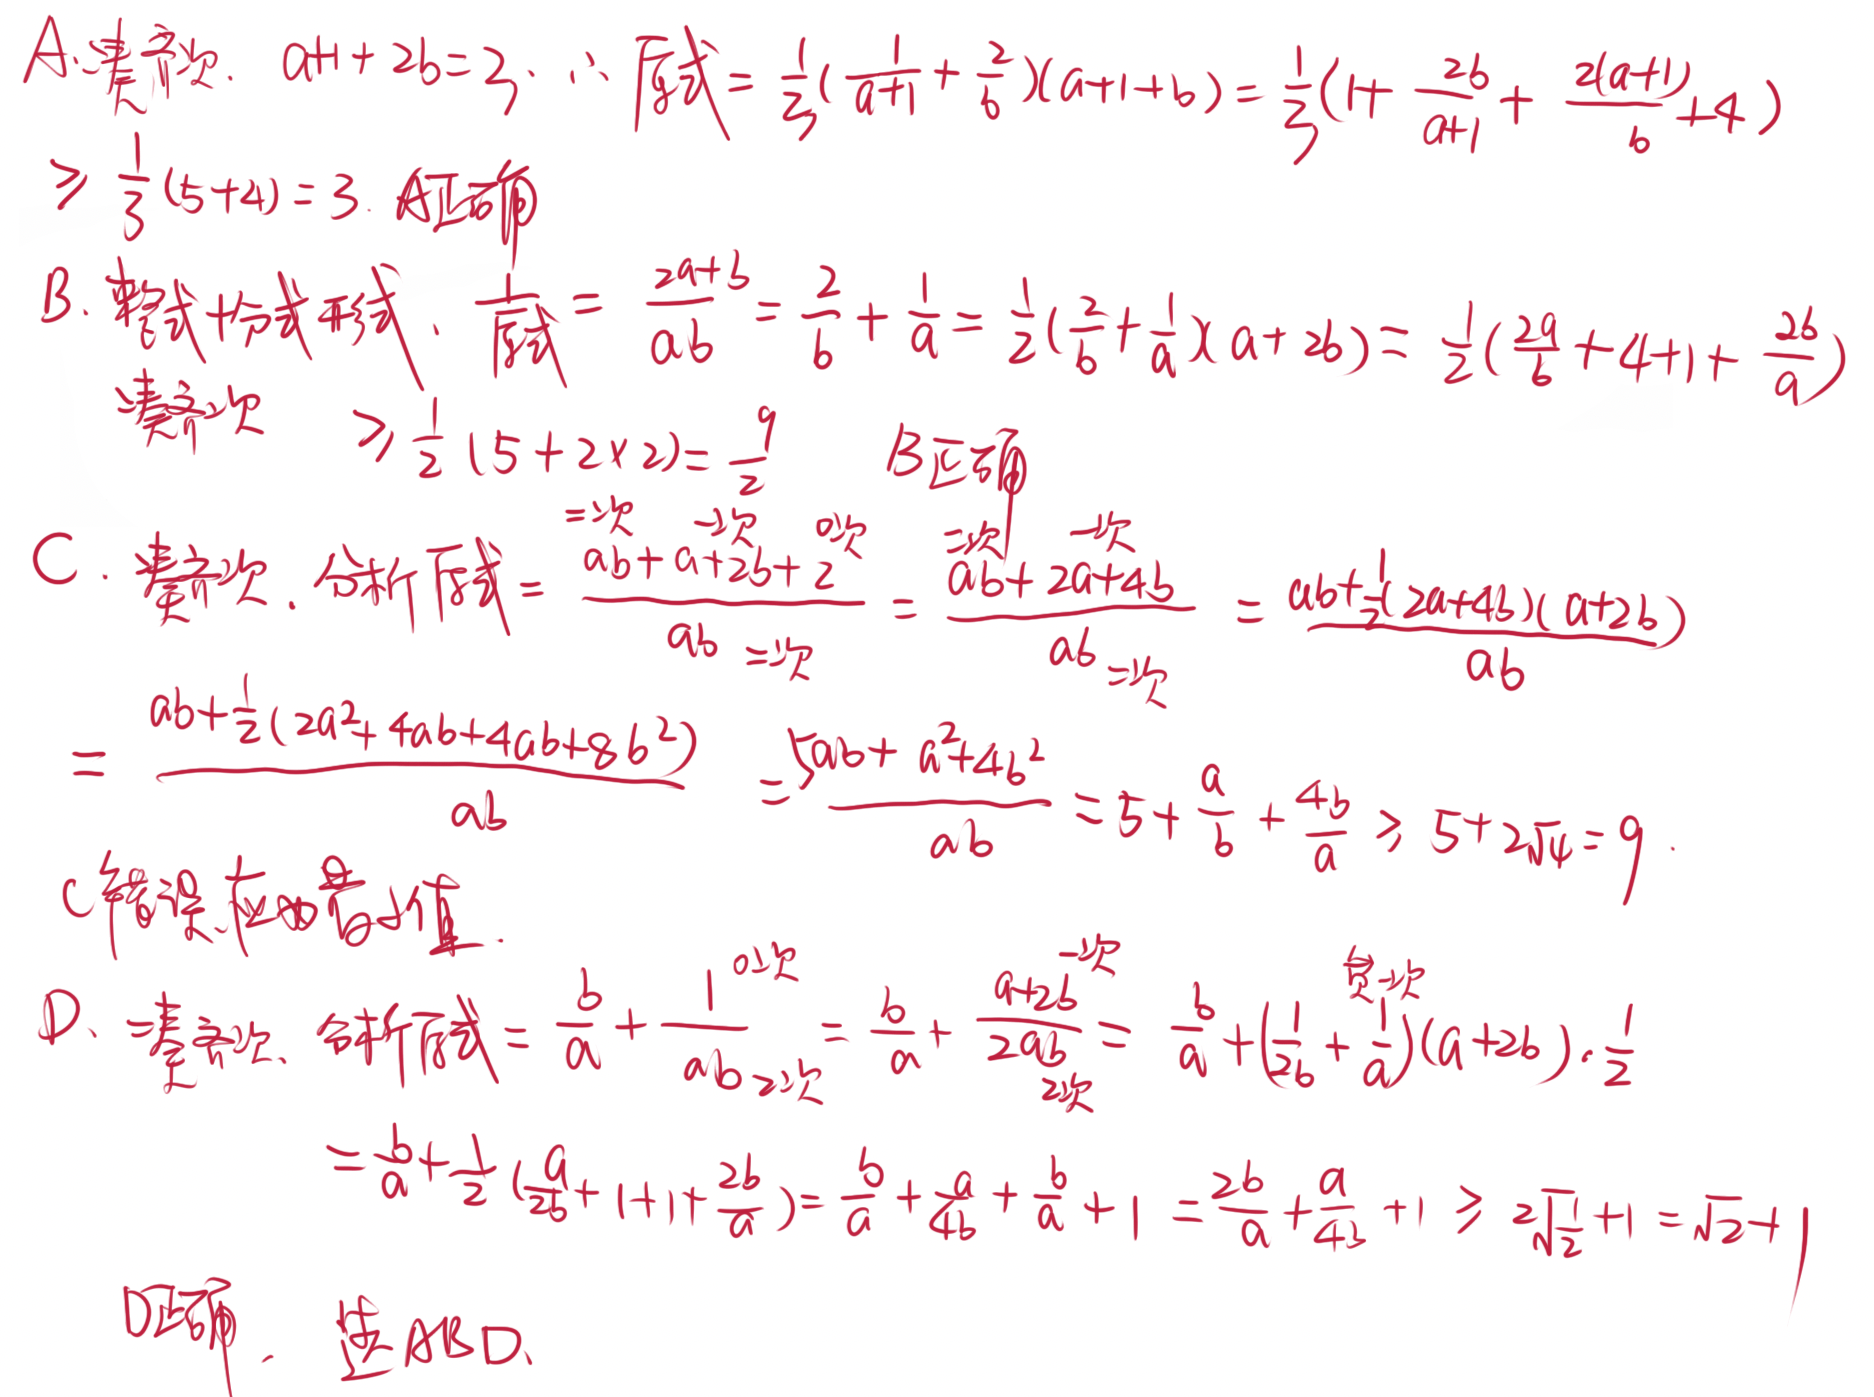 A. 凑齐次. a+1+2b=3. ∴ 原式 = 1/3(1/(a+1) + 2/b)(a+1+b) = 1/3(1+ 2b/(a+1) + 2(a+1)/b +4)
≥ 1/3(5+4)=3. A正确
B. 整式+分式形式. 1/原式 = (2a+b)/ab = 2/b + 1/a = 1/2(2/b + 1/a)(a+2b) = 1/2(2a/b + 4+1+ 2b/a)
凑齐次 ≥ 1/2(5+2×2)= 9/2 B正确
二次 一次 0次 二次 一次
C. 凑齐次. 分析原式 = (ab+a+2b+2)/ab = (ab+2a+4b)/ab = (ab+1/2(2a+4b)(a+2b))/ab
二次 二次
= (ab+1/2(2a²+4ab+4ab+8b²))/ab = (5ab+a²+4b²)/ab = 5+ a/b + 4b/a ≥ 5+2√4=9.
C错误.应为最小值.
0次 一次 负一次
D. 凑齐次. 分析原式 = b/a + 1/ab = b/a + (a+2b)/2ab = b/a +(1/2b + 1/a)(a+2b)·1/2
2次 2次
= b/a + 1/2(a/2b +1+1+ 2b/a) = b/a + a/4b + b/a +1 = 2b/a + a/4b +1 ≥ 2√(1/2)+1 =√2+1
D正确. 选ABD.